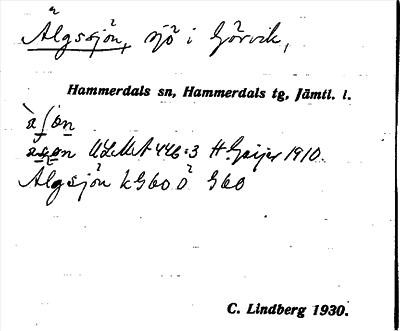 Älgssjön, sjö i Görvik,
Hammerdals sn, Hammerdals tg, Jämtl. l.
ULMA 446:3 H. Geijer 1910.
Älgsjön kG60 ö G60
C. Lindberg 1930.